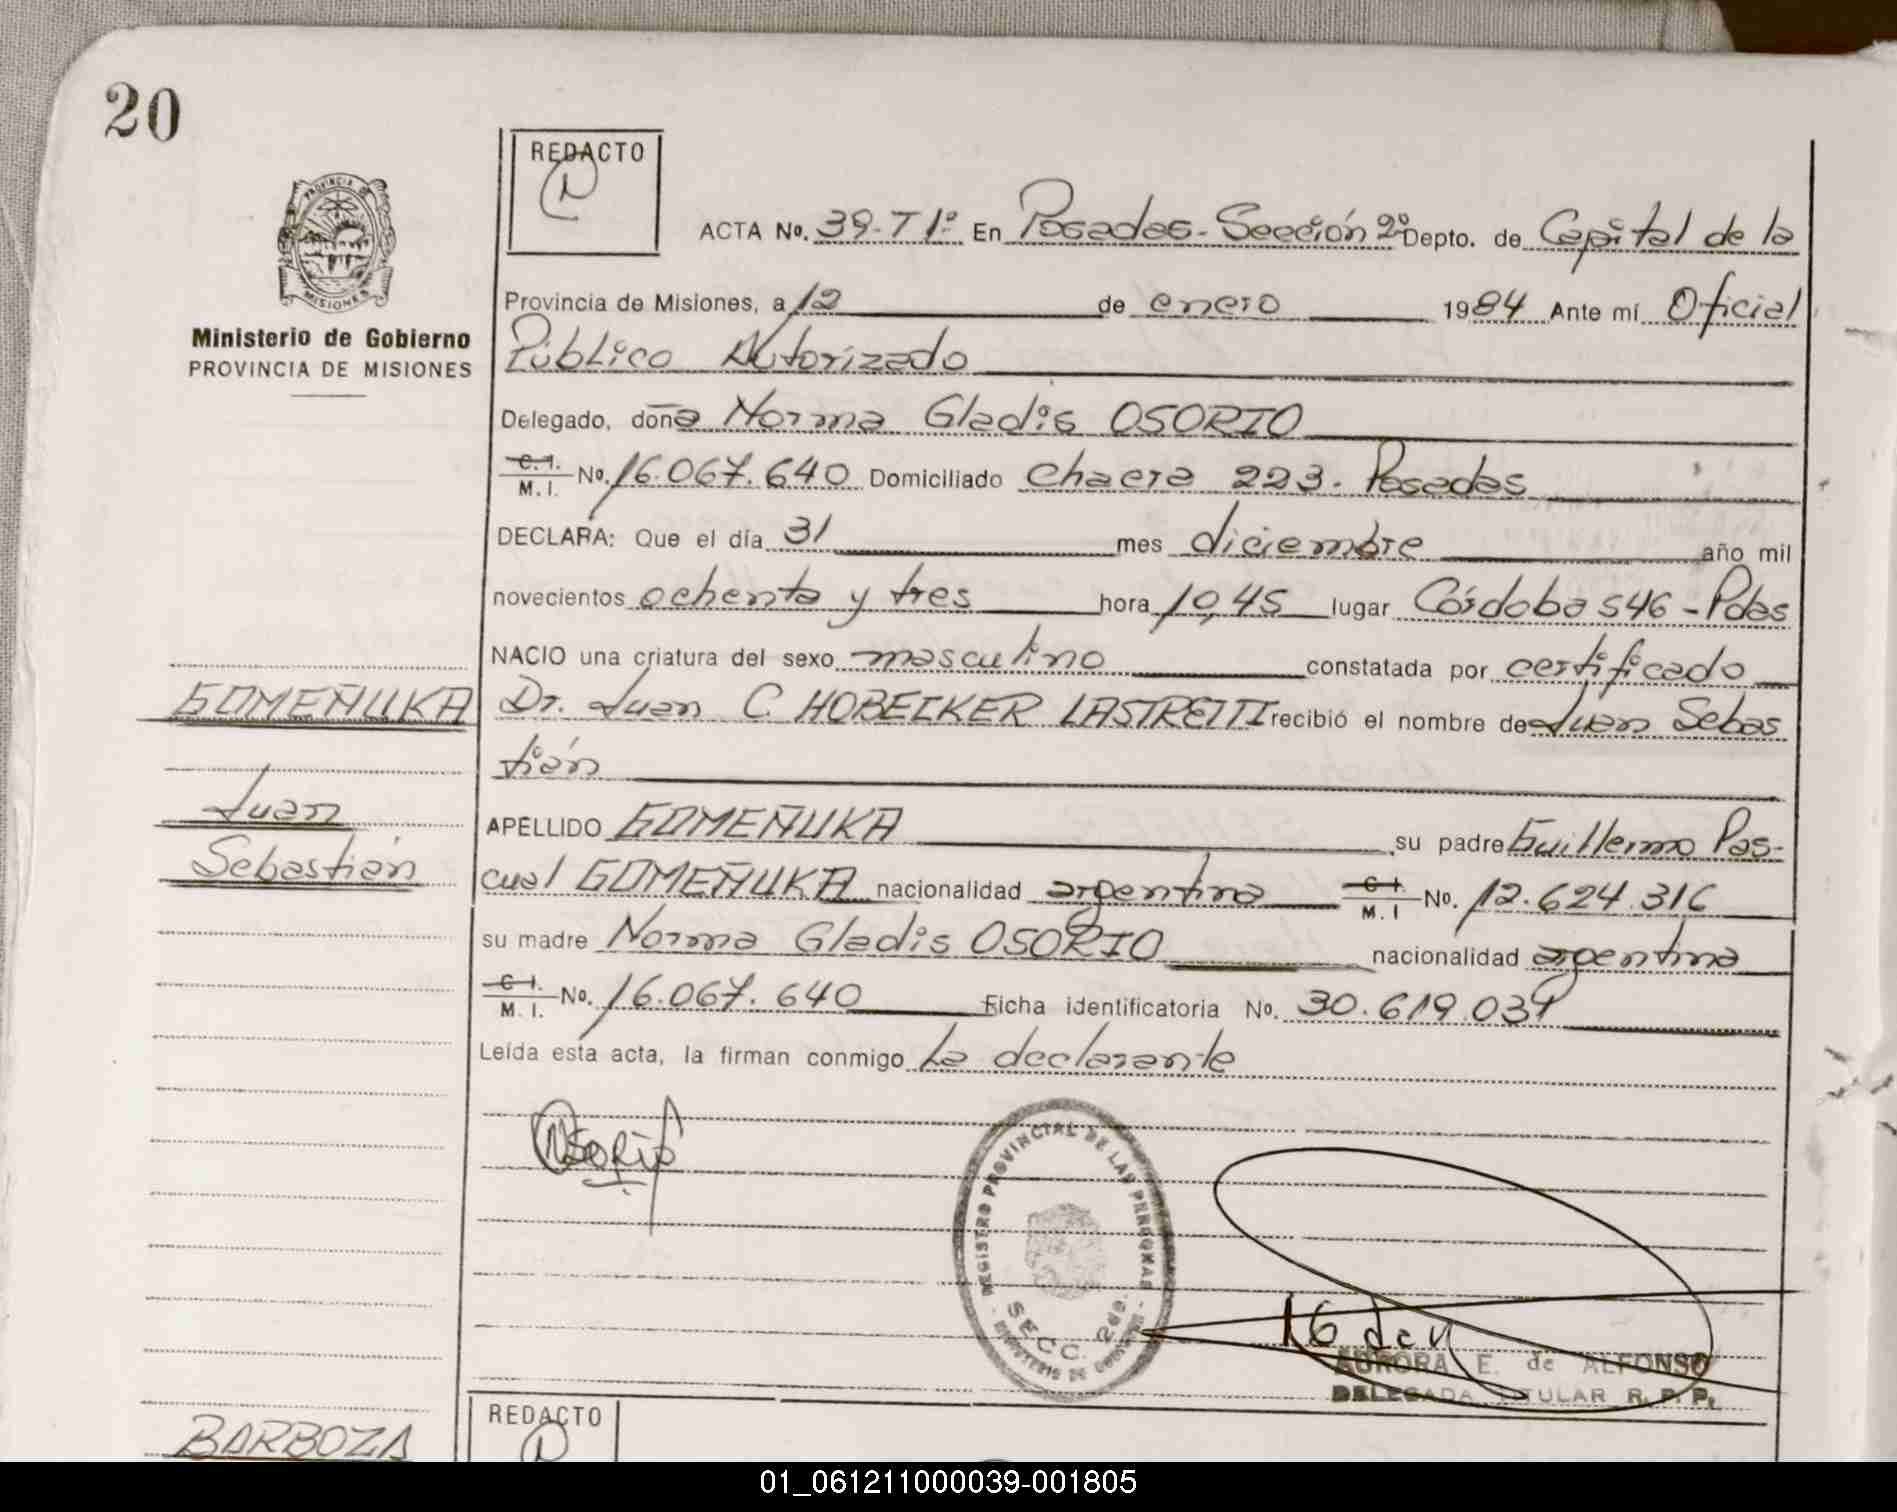 20
REDACTO
PROVINCIA DE
MISIONES
Ministerio de Gobierno
PROVINCIA DE MISIONES
ACTA No. 39-T1º En Posadas-Sección 2º Depto. de Capital de la
Provincia de Misiones, a 12 de enero 1984 Ante mí Oficial
Público Autorizado
Delegado, doña Norma Gladis OSORIO
C.I.
M.I. No. 16.067.640 Domiciliado Chacra 223. Posadas
DECLARA: Que el día 31 mes diciembre año mil
novecientos ochenta y tres hora 10,45 lugar Córdoba 546-Pdas
NACIO una criatura del sexo masculino constatada por certificado
GOMEÑUKA
Dr. Juan C HOBEIKER LASTRETTI recibió el nombre de Juan Sebas
tián
Juan
Sebastián
APELLIDO GOMEÑUKA su padre Guillermo Pas-
cual GOMEÑUKA nacionalidad argentina C.I.
M.I No. 12.624.316
su madre Norma Gladis OSORIO nacionalidad argentina
C.I.
M.I. No. 16.067.640 Ficha identificatoria No. 30.619.034
Leída esta acta, la firman conmigo La declarante
NOsorio
REGISTRO PROVINCIAL DE LAS PERSONAS
SECC. 2da.
MINISTERIO DE GOBIERNO
AURORA E. de ALFONSO
DELEGADA TITULAR R. P. P.
BARBOZA
REDACTO
01_061211000039-001805